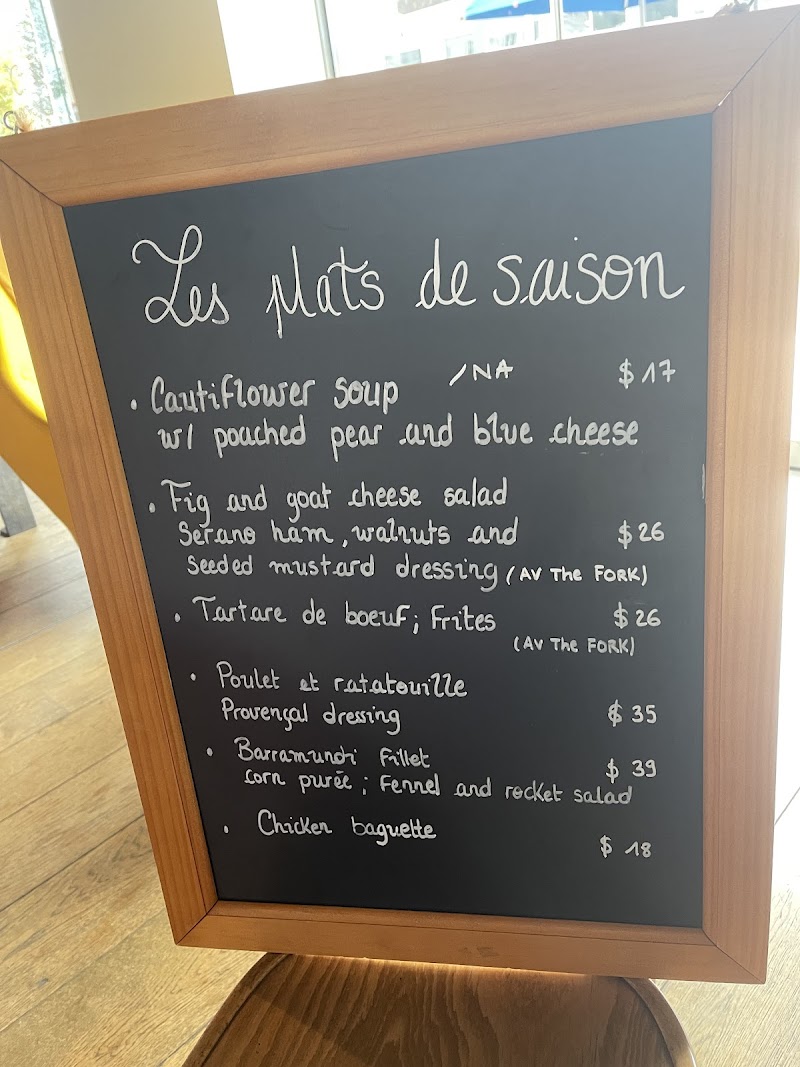 Les plats de saison
• Cautiflower soup /NA $17
w/ poached pear and blue cheese
• Fig and goat cheese salad
Serano ham, walnuts and $26
Seeded mustard dressing (AV The FORK)
• Tartare de boeuf; Frites $26
(AV The FORK)
• Poulet et ratatouille
Provençal dressing $35
• Barramundi Fillet $39
corn purée; Fennel and rocket salad
• Chicken baguette $18